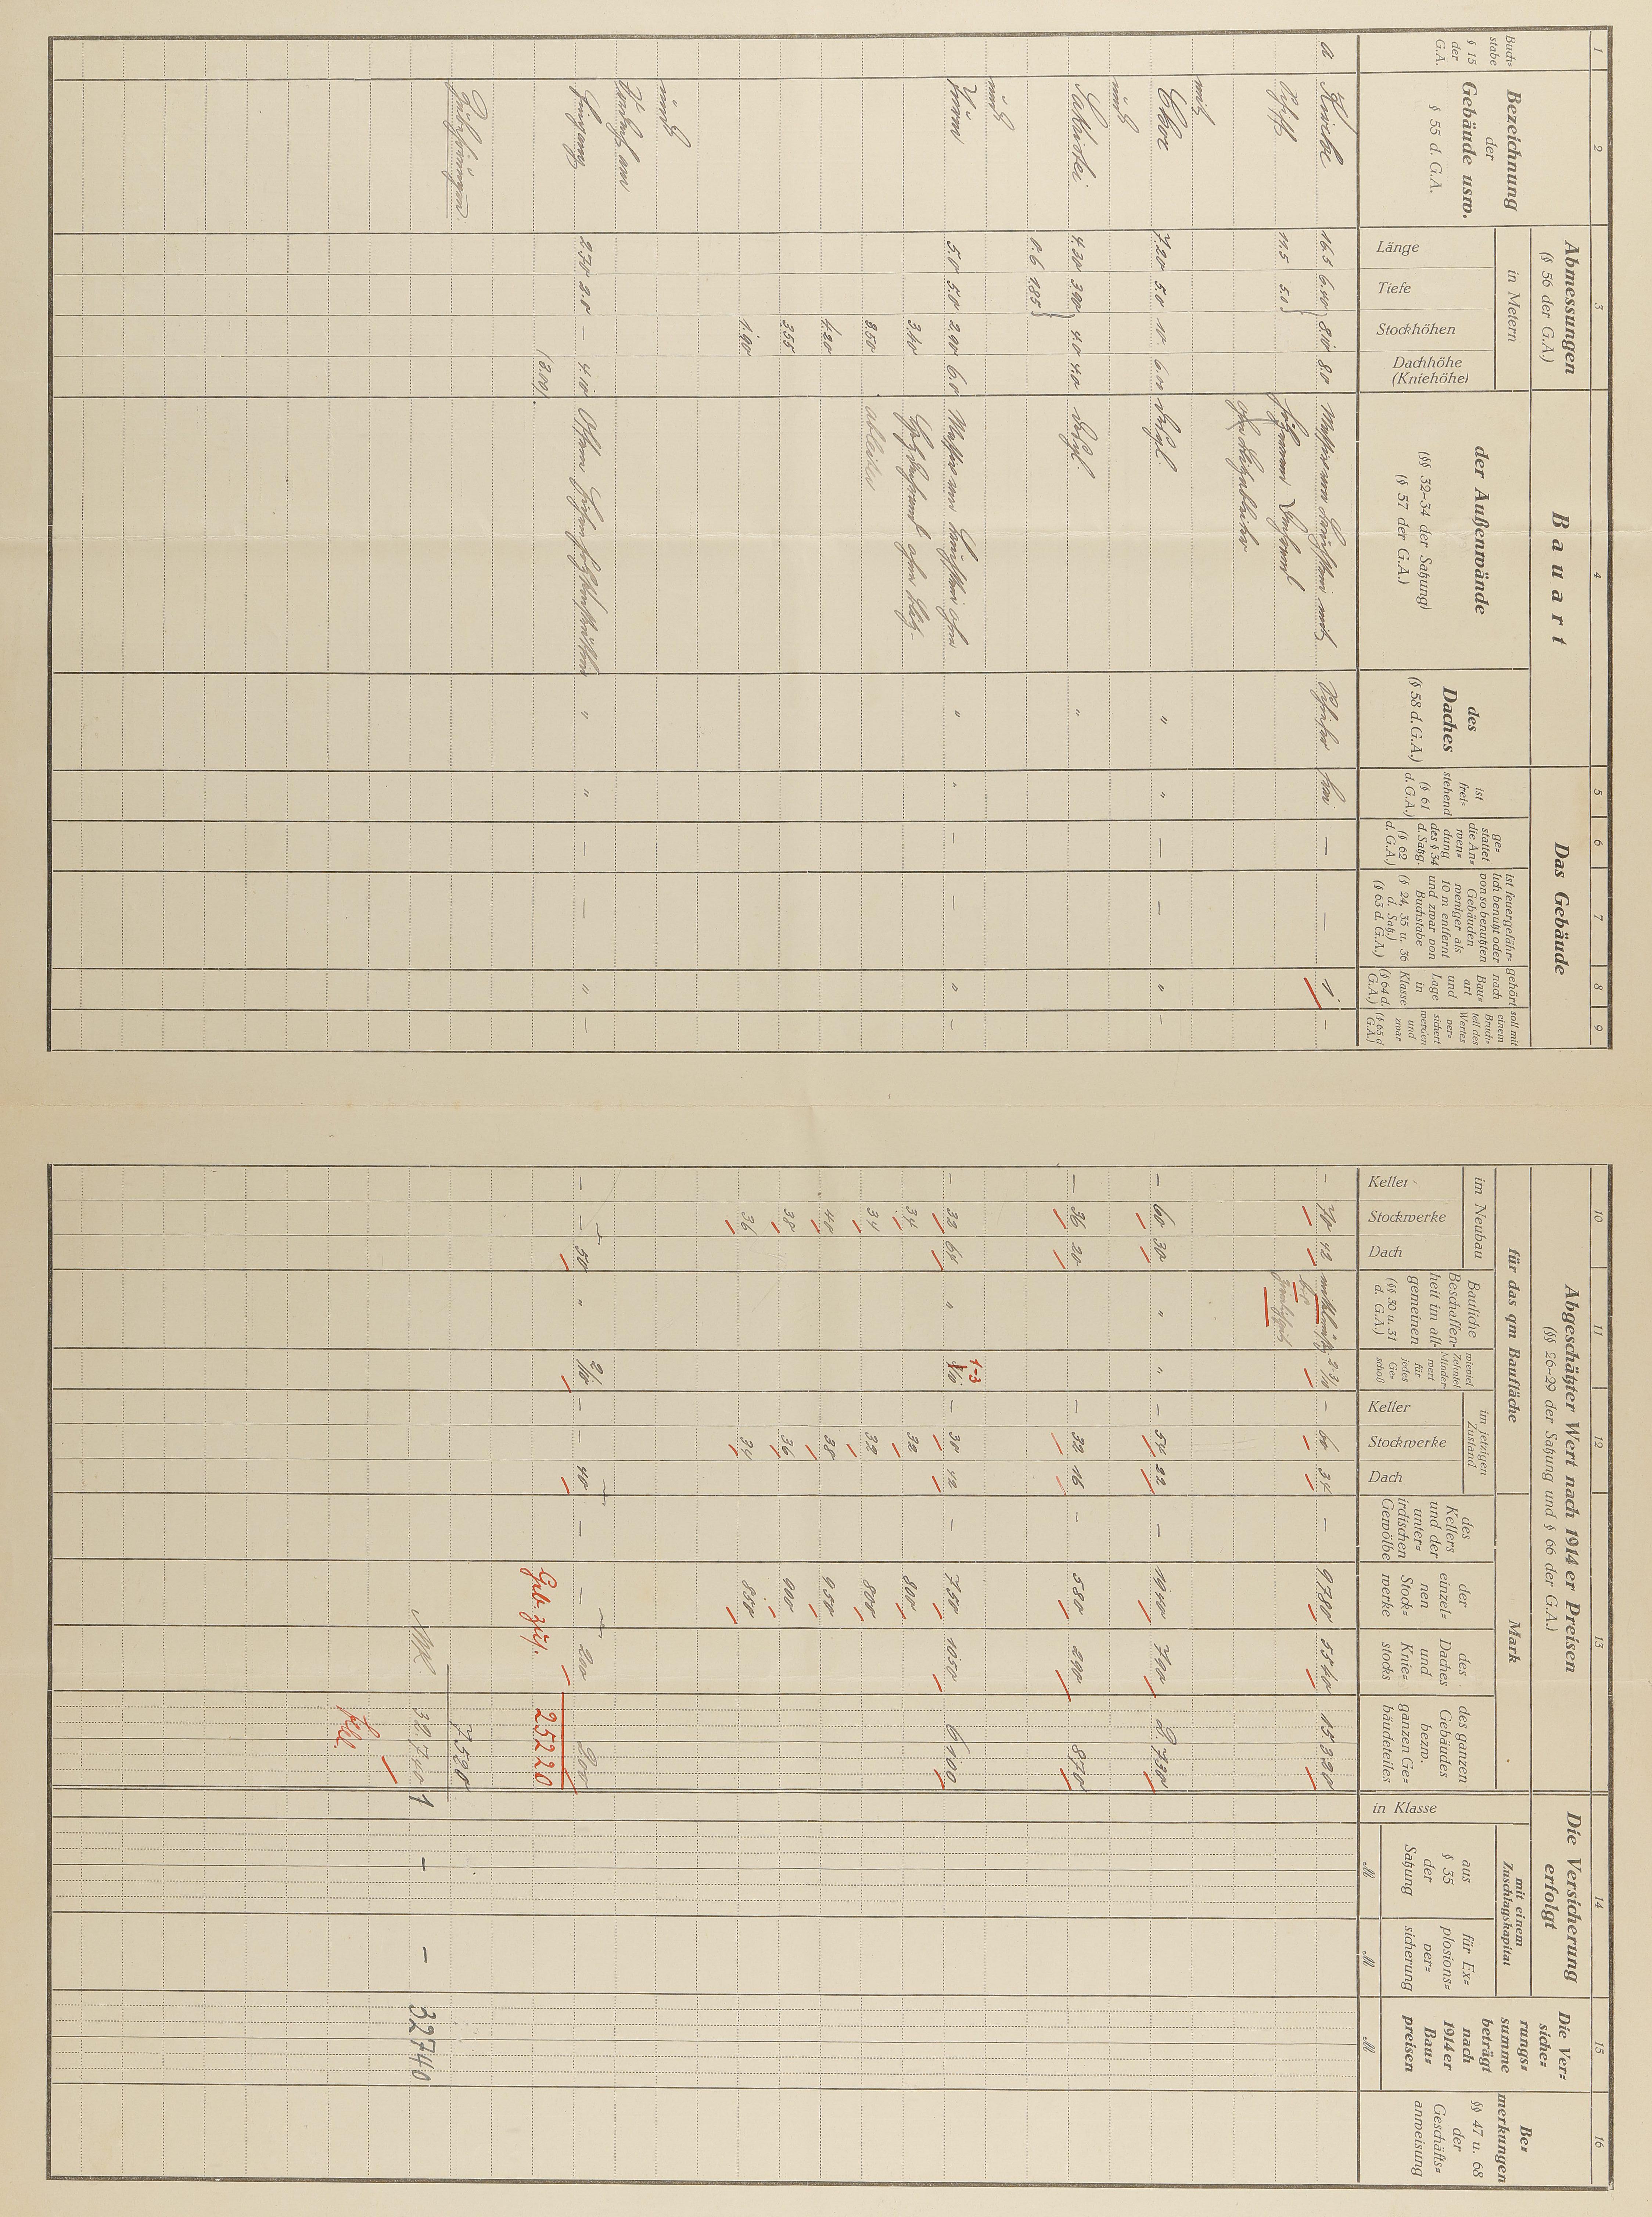 1 2 3 4 5 6 7 8 9
Buch=
stabe
§ 15
der
G.A.
Bezeichnung
der
Gebäude usw.
§ 55 d. G.A.
Abmessungen
(§ 56 der G.A.)
in Metern
Länge
Tiefe
Stockhöhen
Dachhöhe
(Kniehöhe)
Bauart
der Außenwände
(§§ 32–34 der Satzung)
(§ 57 der G.A.)
des
Daches
(§ 58 d. G.A.)
Das Gebäude
ist
frei=
stehend
(§ 61
d. G.A.)
ge=
stattet
die An=
wen=
dung
des § 34
d. Satzg.
(§ 62
d. G.A.)
ist feuergefähr=
lich benutzt oder
von so benutzten
Gebäuden
weniger als
10 m entfernt
und zwar von
Buchstabe
(§ 24, 35 u. 36
d. Satz.)
(§ 63 d. G.A.)
gehört
nach
Bau=
art
und
Lage
in
Klasse
(§ 64 d.
G.A.)
soll mit
einem
Bruch=
teil des
Wertes
ver=
sichert
werden
und
zwar
(§ 65 d
G.A.)
a Kirche 16.5 6.40 8.10 8.0 Massiv von Haustein mit Schiefer frei — — 1. –
Schiff 11.5 5.0
ohne Blitzableiter
mit
Chor 7.20 5.0 10. 6.0 desgl. " " — — " –
und
Sakristei 4.30 3.90 4.0 4.0 desgl. "
0.6 1.85
und
Turm 5.0 5.0 2.90 6.0 Massiv von Haustein ohne " " — — " –
3.40
3.50 ableiter
4.20
3.55
1.90
und
Vordach am
Eingang 2.70 2.0 — 4.10 " " — — " –
(3.00).
Zubehörungen.
10 11 12 13 14 15 16
Abgeschätzter Wert nach 1914 er Preisen
(§§ 26–29 der Satzung und § 66 der G.A.)
für das qm Baufläche
im Neubau
Keller
Stockwerke
Dach
Bauliche
Beschaffen=
heit im all=
gemeinen
(§§ 30 u. 31
d. G.A.)
wieviel
Zehntel
Minder=
wert
für
jedes
Ge=
schoß
im jetzigen
Zustand
Keller
Stockwerke
Dach
Mark
des
Kellers
und der
unter=
irdischen
Gewölbe
der
einzel=
nen
Stock=
werke
des
Daches
und
Knie=
stocks
des ganzen
Gebäudes
bezw.
ganzen Ge=
bäudeteiles
Die Versicherung
erfolgt
in Klasse
mit einem
Zuschlagskapital
aus
§ 35
der
Satzung
für Ex=
plosions=
ver=
sicherung
M M
Die Ver=
siche=
rungs=
summe
beträgt
nach
1914 er
Bau=
preisen
M
Be=
merkungen
§§ 47 u. 68
der
Geschäfts=
anweisung
– 70 42 mittelmäßig 2-3/10 – 60 34 – 9780 5540 15.320
bis
– 60 30 " " – 54 22 – 1940 790 2.730
– 36 20 – 32 16 – 580 290 870
– 32 64 " 1-3 /10 – 30 42 – 750 1050 6100
34 32 800
34 32 800
40 38 950
38 36 900
36 34 850
– – 50 " 2/10 – – 40 – – 200 200
Geb. zus. 25220
7520
MK. 32.740 1 – – 32740